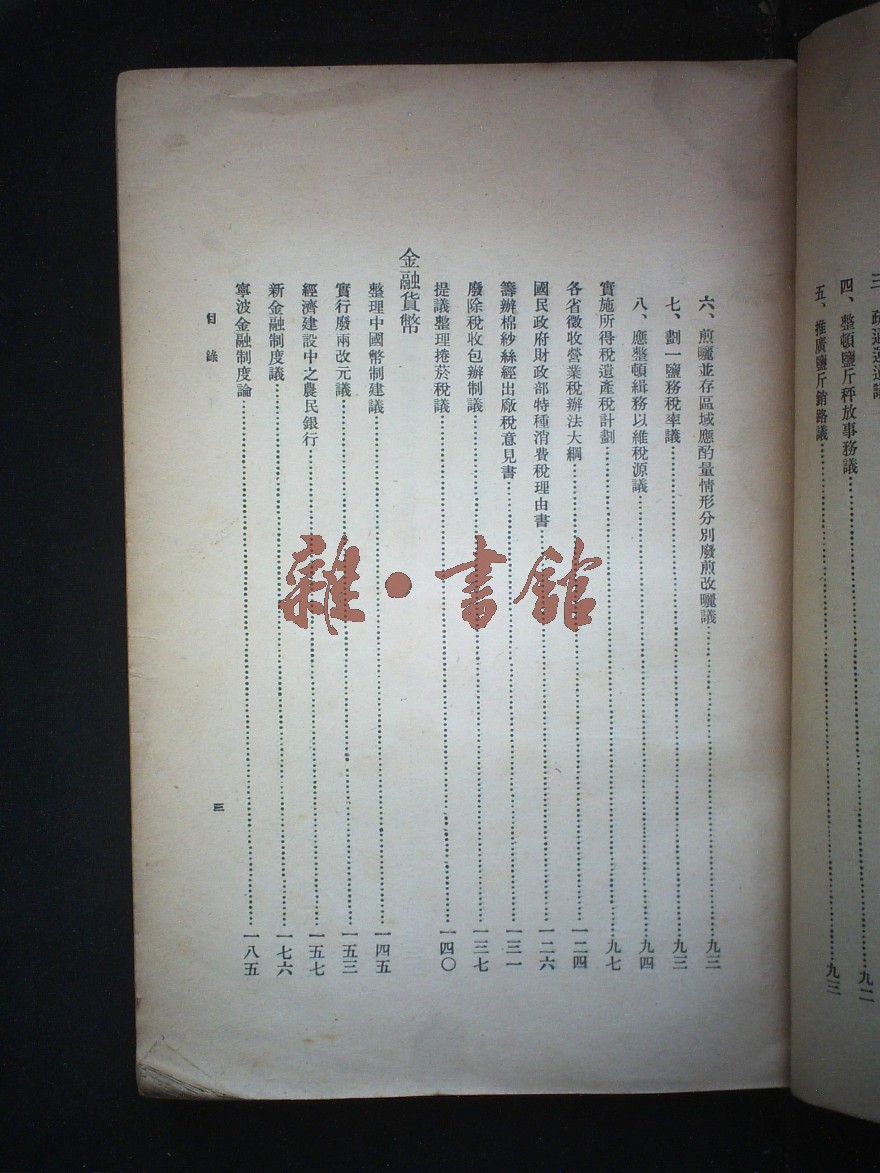 四、整頓鹽斤秤放事務議……九二
五、推廣鹽斤銷路議……九三
六、煎曬並存區域應酌量情形分別廢煎改曬議……九三
七、劃一鹽務稅率議……九三
八、應整頓緝務以維稅源議……九四
實施所得稅遺產稅計劃……九七
各省徵收營業稅辦法大綱……一二四
國民政府財政部特種消費稅理由書……一二六
籌辦棉紗絲經出廠稅意見書……一三一
廢除稅收包辦制議……一三七
提議整理捲菸稅議……一四〇
金融貨幣
整理中國幣制建議……一四五
實行廢兩改元議……一五三
經濟建設中之農民銀行……一五七
新金融制度議……一七六
寧波金融制度論……一八五
目錄
三
雜·書館